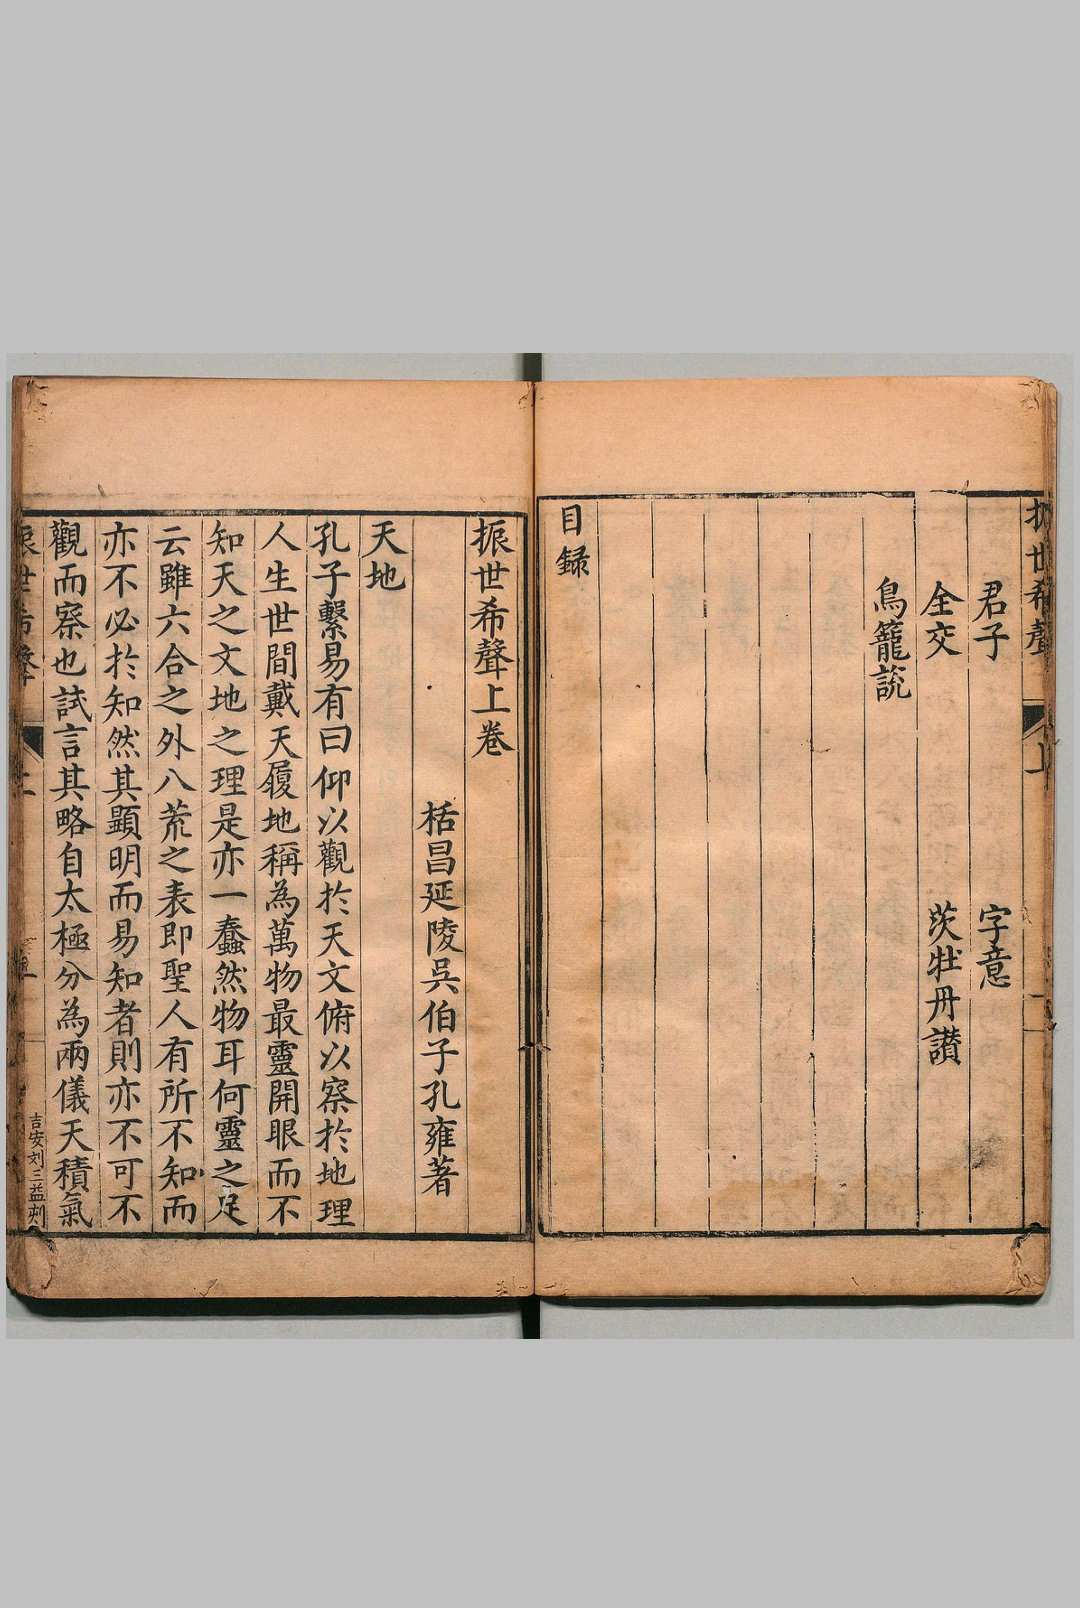 振世希聲
上
君子
字意
全交
茨牡丹讃
鳥籠説
目録
振世希聲上卷
栝昌延陵吳伯子孔雍著
天地
孔子繫易有曰仰以觀於天文俯以察於地理
人生世間戴天履地稱為萬物最靈開眼而不
知天之文地之理是亦一蠢然物耳何靈之足
云雖六合之外八荒之表即聖人有所不知而
亦不必於知然其顯明而易知者則亦不可不
觀而察也試言其略自太極分為兩儀天積氣
振世希聲
吉安刘三益刻